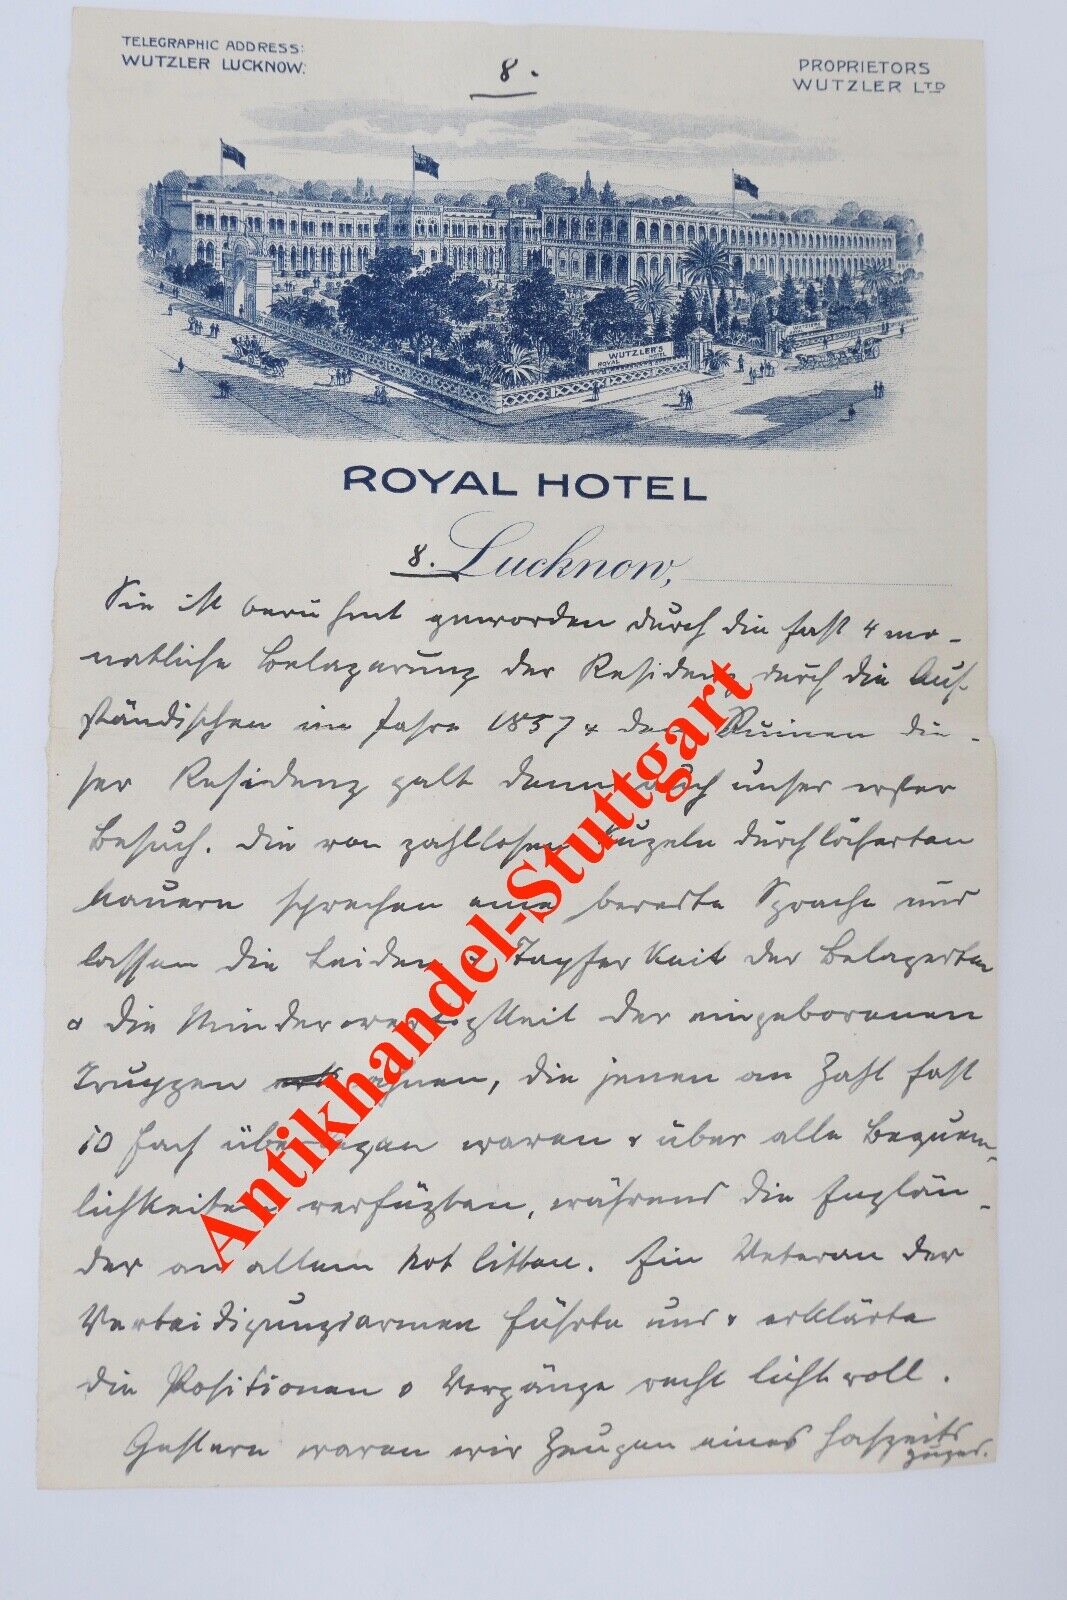 TELEGRAPHIC ADDRESS:
WUTZLER LUCKNOW.
8.
PROPRIETORS
WUTZLER LTD
WUTZLER'S
ROYAL
ROYAL HOTEL
8. Lucknow,
Sie ist berühmt geworden durch die fast 4 mo-
natliche Belagerung der Residenz durch die Auf-
ständischen im Jahre 1857 & den Ruinen die-
ser Residenz galt denn auch unser erster
Besuch. Die von zahllosen Kugeln durchlöcherten
Mauern sprechen eine beredte Sprache und
lassen die Leiden & Tapferkeit der Belagerten
& die Minderwertigkeit der eingeborenen
Truppen ahnen, die jenen an Zahl fast
10 fach überlegen waren & über alle Bequem-
lichkeiten verfügten, während die Englän-
der an allem Not litten. Ein Veteran der
Verteidigungsarmee führte uns & erklärte
die Positionen & Vorgänge recht lichtvoll.
Gestern waren wir Zeugen eines Hochzeits
zuges.
Antikhandel-Stuttgart